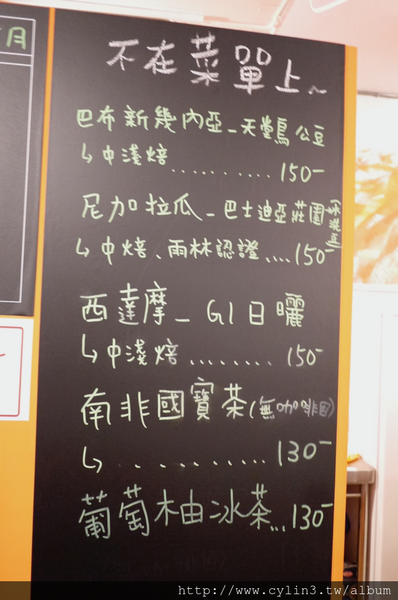 月
不在菜單上~
巴布新幾內亞_天堂鳥公豆
↳中淺焙..........150-
尼加拉瓜_巴士迪亞莊園
↳中焙、雨林認證....150-
西達摩_G1日曬
↳中淺焙........150-
南非國寶茶(無咖啡因)
↳...........130-
葡萄柚冰茶...130-
http://www.cylin3.tw/album